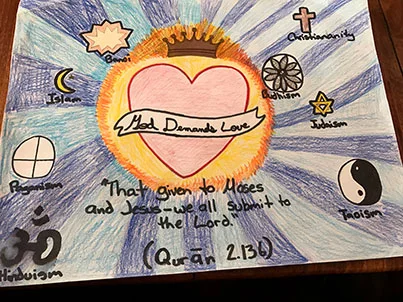 Christiananity
Banoi
Islam
Budhism
God Demands Love
Judaism
Paganism
"That given to Moses
and Jesus-we all submit to
the Lord."
Taoism
(Qur'ān 2.136)
Hinduism